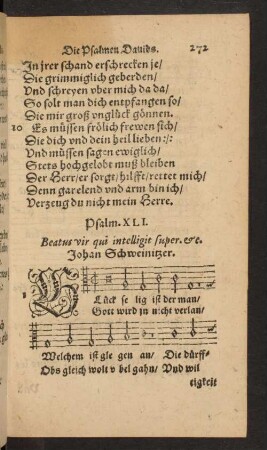 Die Psalmen Dauids. 272
In jrer schand erschrecken je/
Die grimmiglich geberden/
Vnd schreyen vber mich da da/
So solt man dich entpfangen so/
Die mir groß vnglück gönnen.
10 Es müssen frölich frewen sich/
Die dich vnd dein heil lieben:/:
Vnd müssen sagen ewiglich/
Stets hochgelobt muß bleiben
Der Herr/er sorgt/hilfft/rettet mich/
Denn gar elend vnd arm bin ich/
Verzeug du nicht mein Herre.
Psalm. XLI.
Beatus vir qui intelligit super. &c.
Johan Schweinitzer.
GLück se lig ist der man/
Gott wird jn nicht verlan/
Welchem ist gle gen an/ Die dürff-
Obs gleich wolt v bel gahn/ Vnd wil
tigkeit